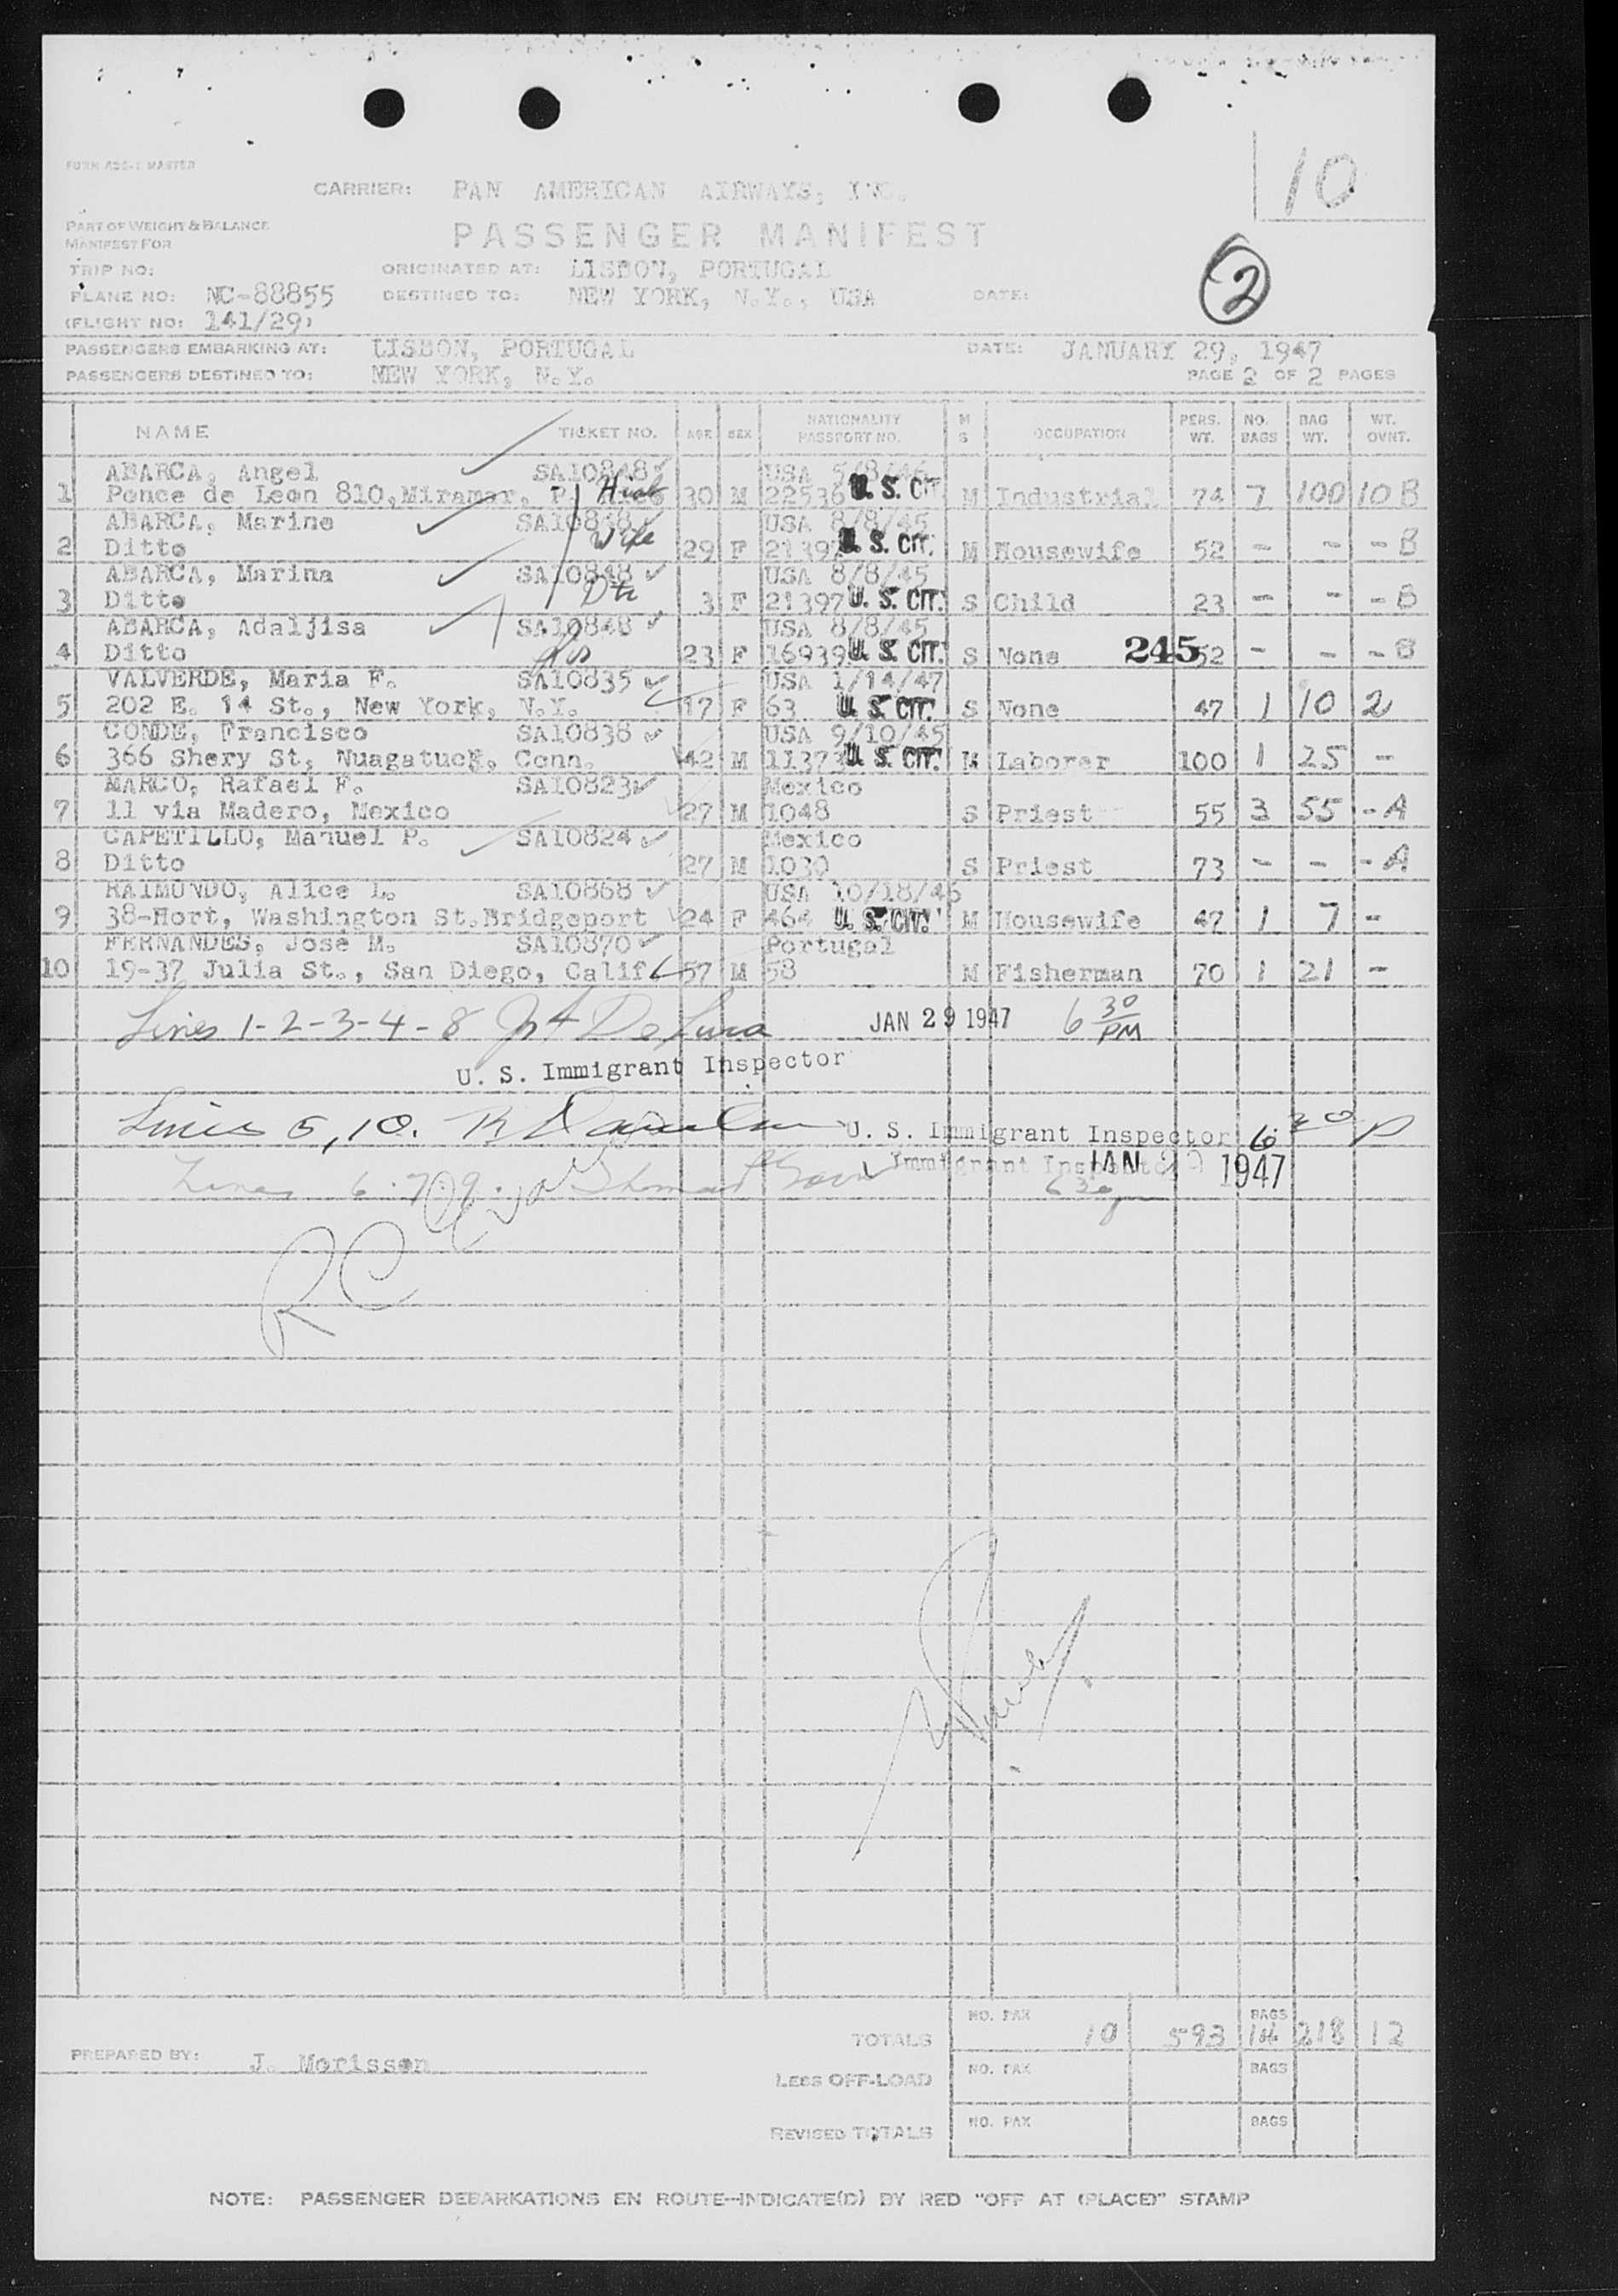 10
CARRIER: PAN AMERICAN AIRWAYS, INC.
PART OF WEIGHT & BALANCE
MANIFEST FOR
PASSENGER MANIFEST
2
TRIP NO: ORIGINATED AT: LISBON, PORTUGAL
PLANE NO: NC-88855 DESTINED TO: NEW YORK, N.Y., USA DATE:
(FLIGHT NO: 141/29)
PASSENGERS EMBARKING AT: LISBON, PORTUGAL DATE: JANUARY 29, 1947
PASSENGERS DESTINED TO: NEW YORK, N.Y. PAGE 2 OF 2 PAGES
NAME TICKET NO. AGE SEX NATIONALITY PASSPORT NO. M S OCCUPATION PERS. WT. NO. BAGS BAG WT. WT. OVNT.
ABARCA, Angel SA10848 USA
1 Ponce de Leon 810, Miramar, P. 30 M 22536 U. S. CIT. M Industrial 74 7 100 10 B
ABARCA, Marine SA10848 USA 8/8/45
2 Ditto Wife 29 F 21397 U. S. CIT. M Housewife 52 - - - B
ABARCA, Marina SA10848 USA 8/8/45
3 Ditto Dtr 3 F 21397 U. S. CIT. S Child 23 - - - B
ABARCA, Adaljisa SA10848 USA 8/8/45
4 Ditto Sis 23 F 16939 U. S. CIT. S None 245 52 - - - B
VALVERDE, Maria F. SA10835 USA 1/14/47
5 202 E. 14 St., New York, N.Y. 17 F 63 U. S. CIT. S None 47 1 10 2
CONDE, Francisco SA10838 USA 9/10/45
6 366 Shery St, Nuagatuck, Conn. 42 M 11373 U. S. CIT. M Laborer 100 1 25 -
MARCO, Rafael F. SA10823 Mexico
7 11 via Madero, Mexico 27 M 1048 S Priest 55 3 55 - A
CAPETILLO, Manuel P. SA10824 Mexico
8 Ditto 27 M 1030 S Priest 73 - - - A
RAIMUNDO, Alice L. SA10868 USA 10/18/46
9 38-Hort, Washington St. Bridgeport 24 F 464 U. S. CIT. M Housewife 47 1 7 -
FERNANDES, Jose M. SA10870 Portugal
10 19-37 Julia St., San Diego, Calif 57 M 58 M Fisherman 70 1 21 -
Lines 1-2-3-4-8 JAN 29 1947 6 30 PM
U. S. Immigrant Inspector
Lines 5, 10. U. S. Immigrant Inspector 6 30 P
Lines 6. 7. 9. Immigrant Inspector JAN 29 1947
6 30 p
RC
TOTALS NO. PAX 10 593 BAGS 14 218 12
PREPARED BY: J. Morisson
LESS OFF-LOAD NO. PAX BAGS
REVISED TOTALS NO. PAX BAGS
NOTE: PASSENGER DEBARKATIONS EN ROUTE—INDICATE(D) BY RED "OFF AT (PLACE)" STAMP